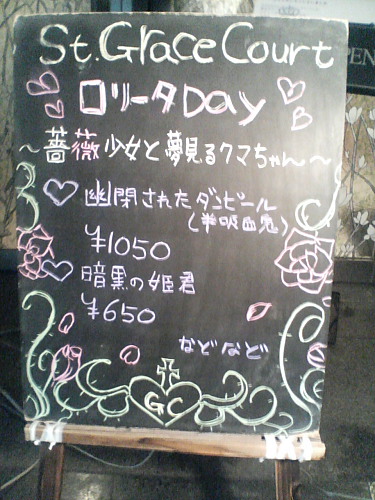 St.Grace Court
ロリータDay
～薔薇少女と夢見るクマちゃん～
幽閉されたダンピール
(半吸血鬼)
¥1050
暗黒の姫君
¥650
などなど
GC